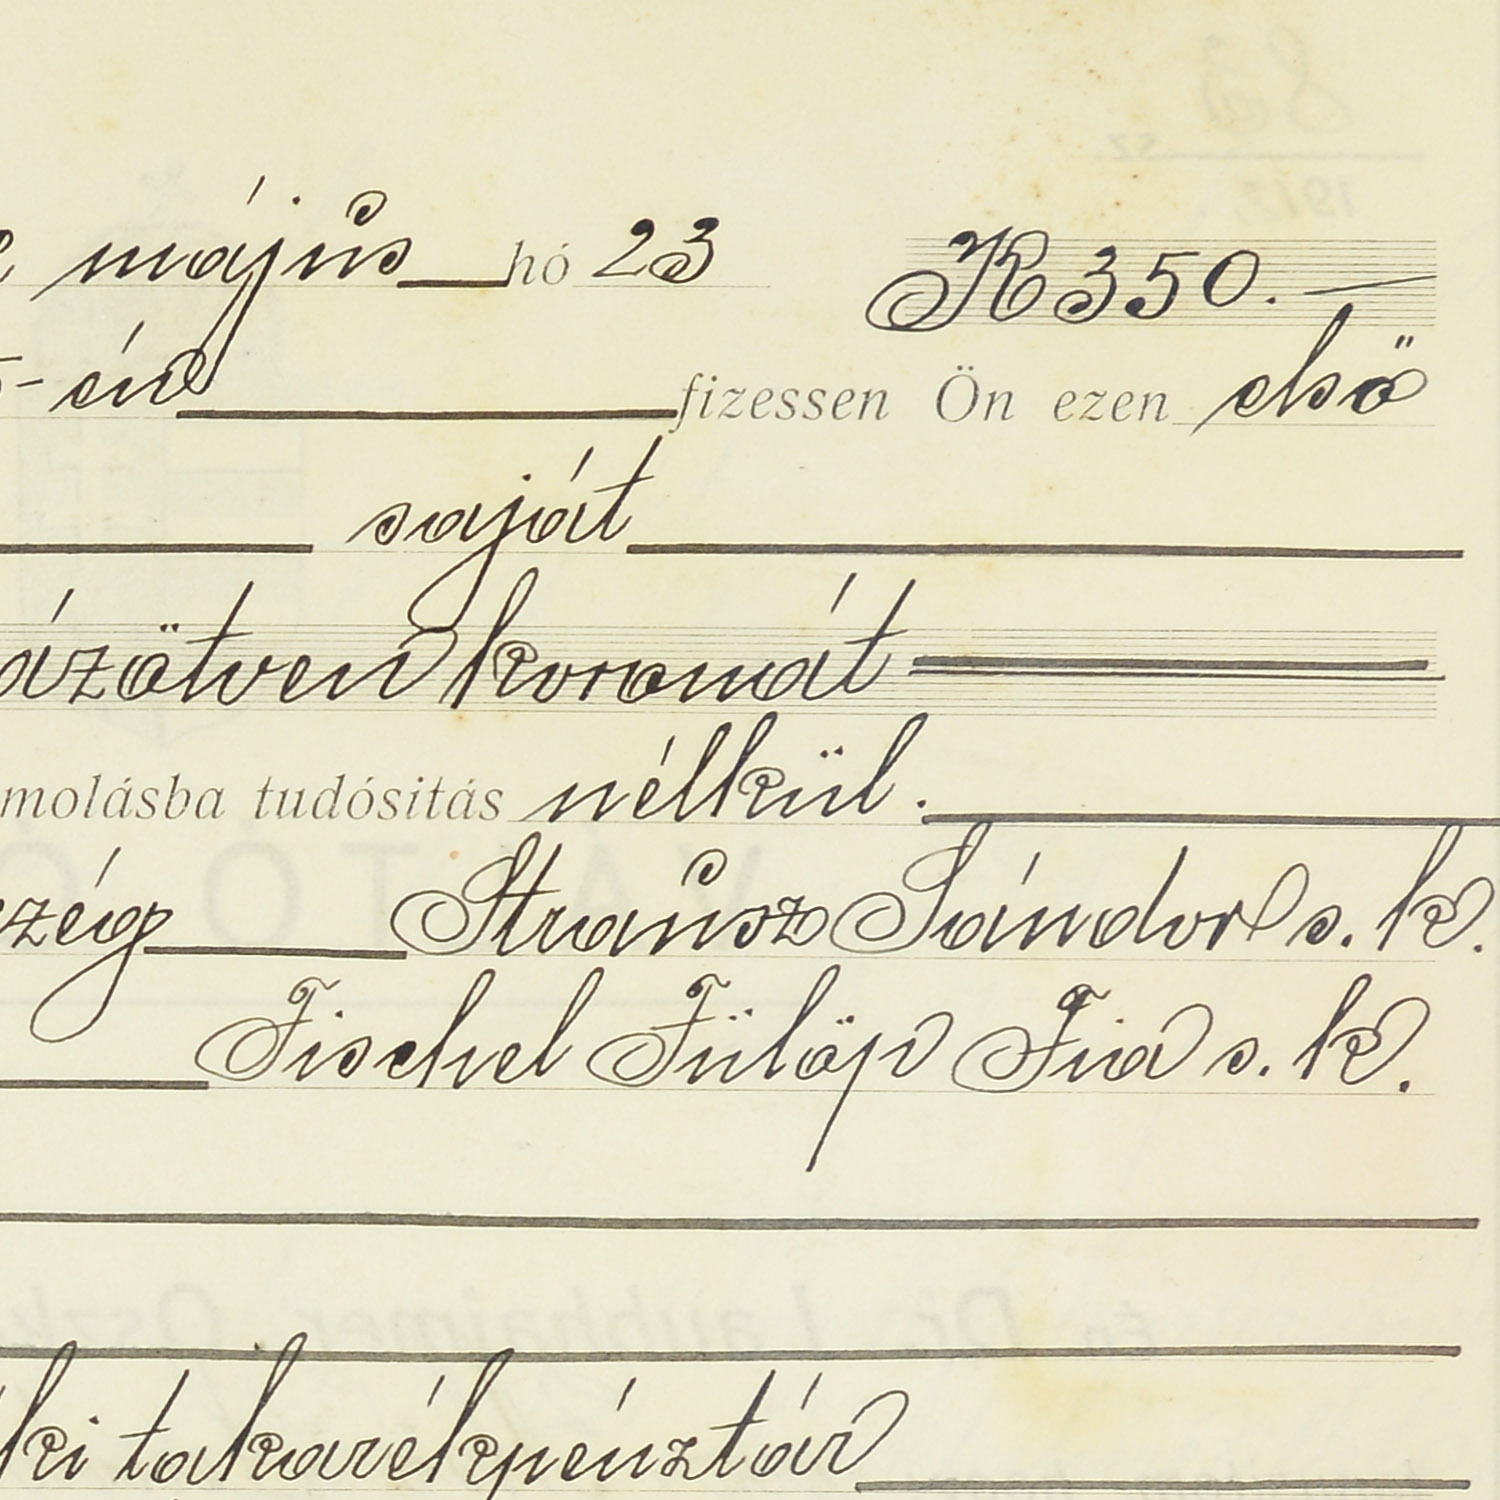 május hó 23 K 350.—
-én fizessen Ön ezen első
saját
ázötven koronát
molásba tudósitás nélkül.
zég Strausz Sándor s. k.
Fischel Fülöp Fia s. k.
ki takarékpénztár